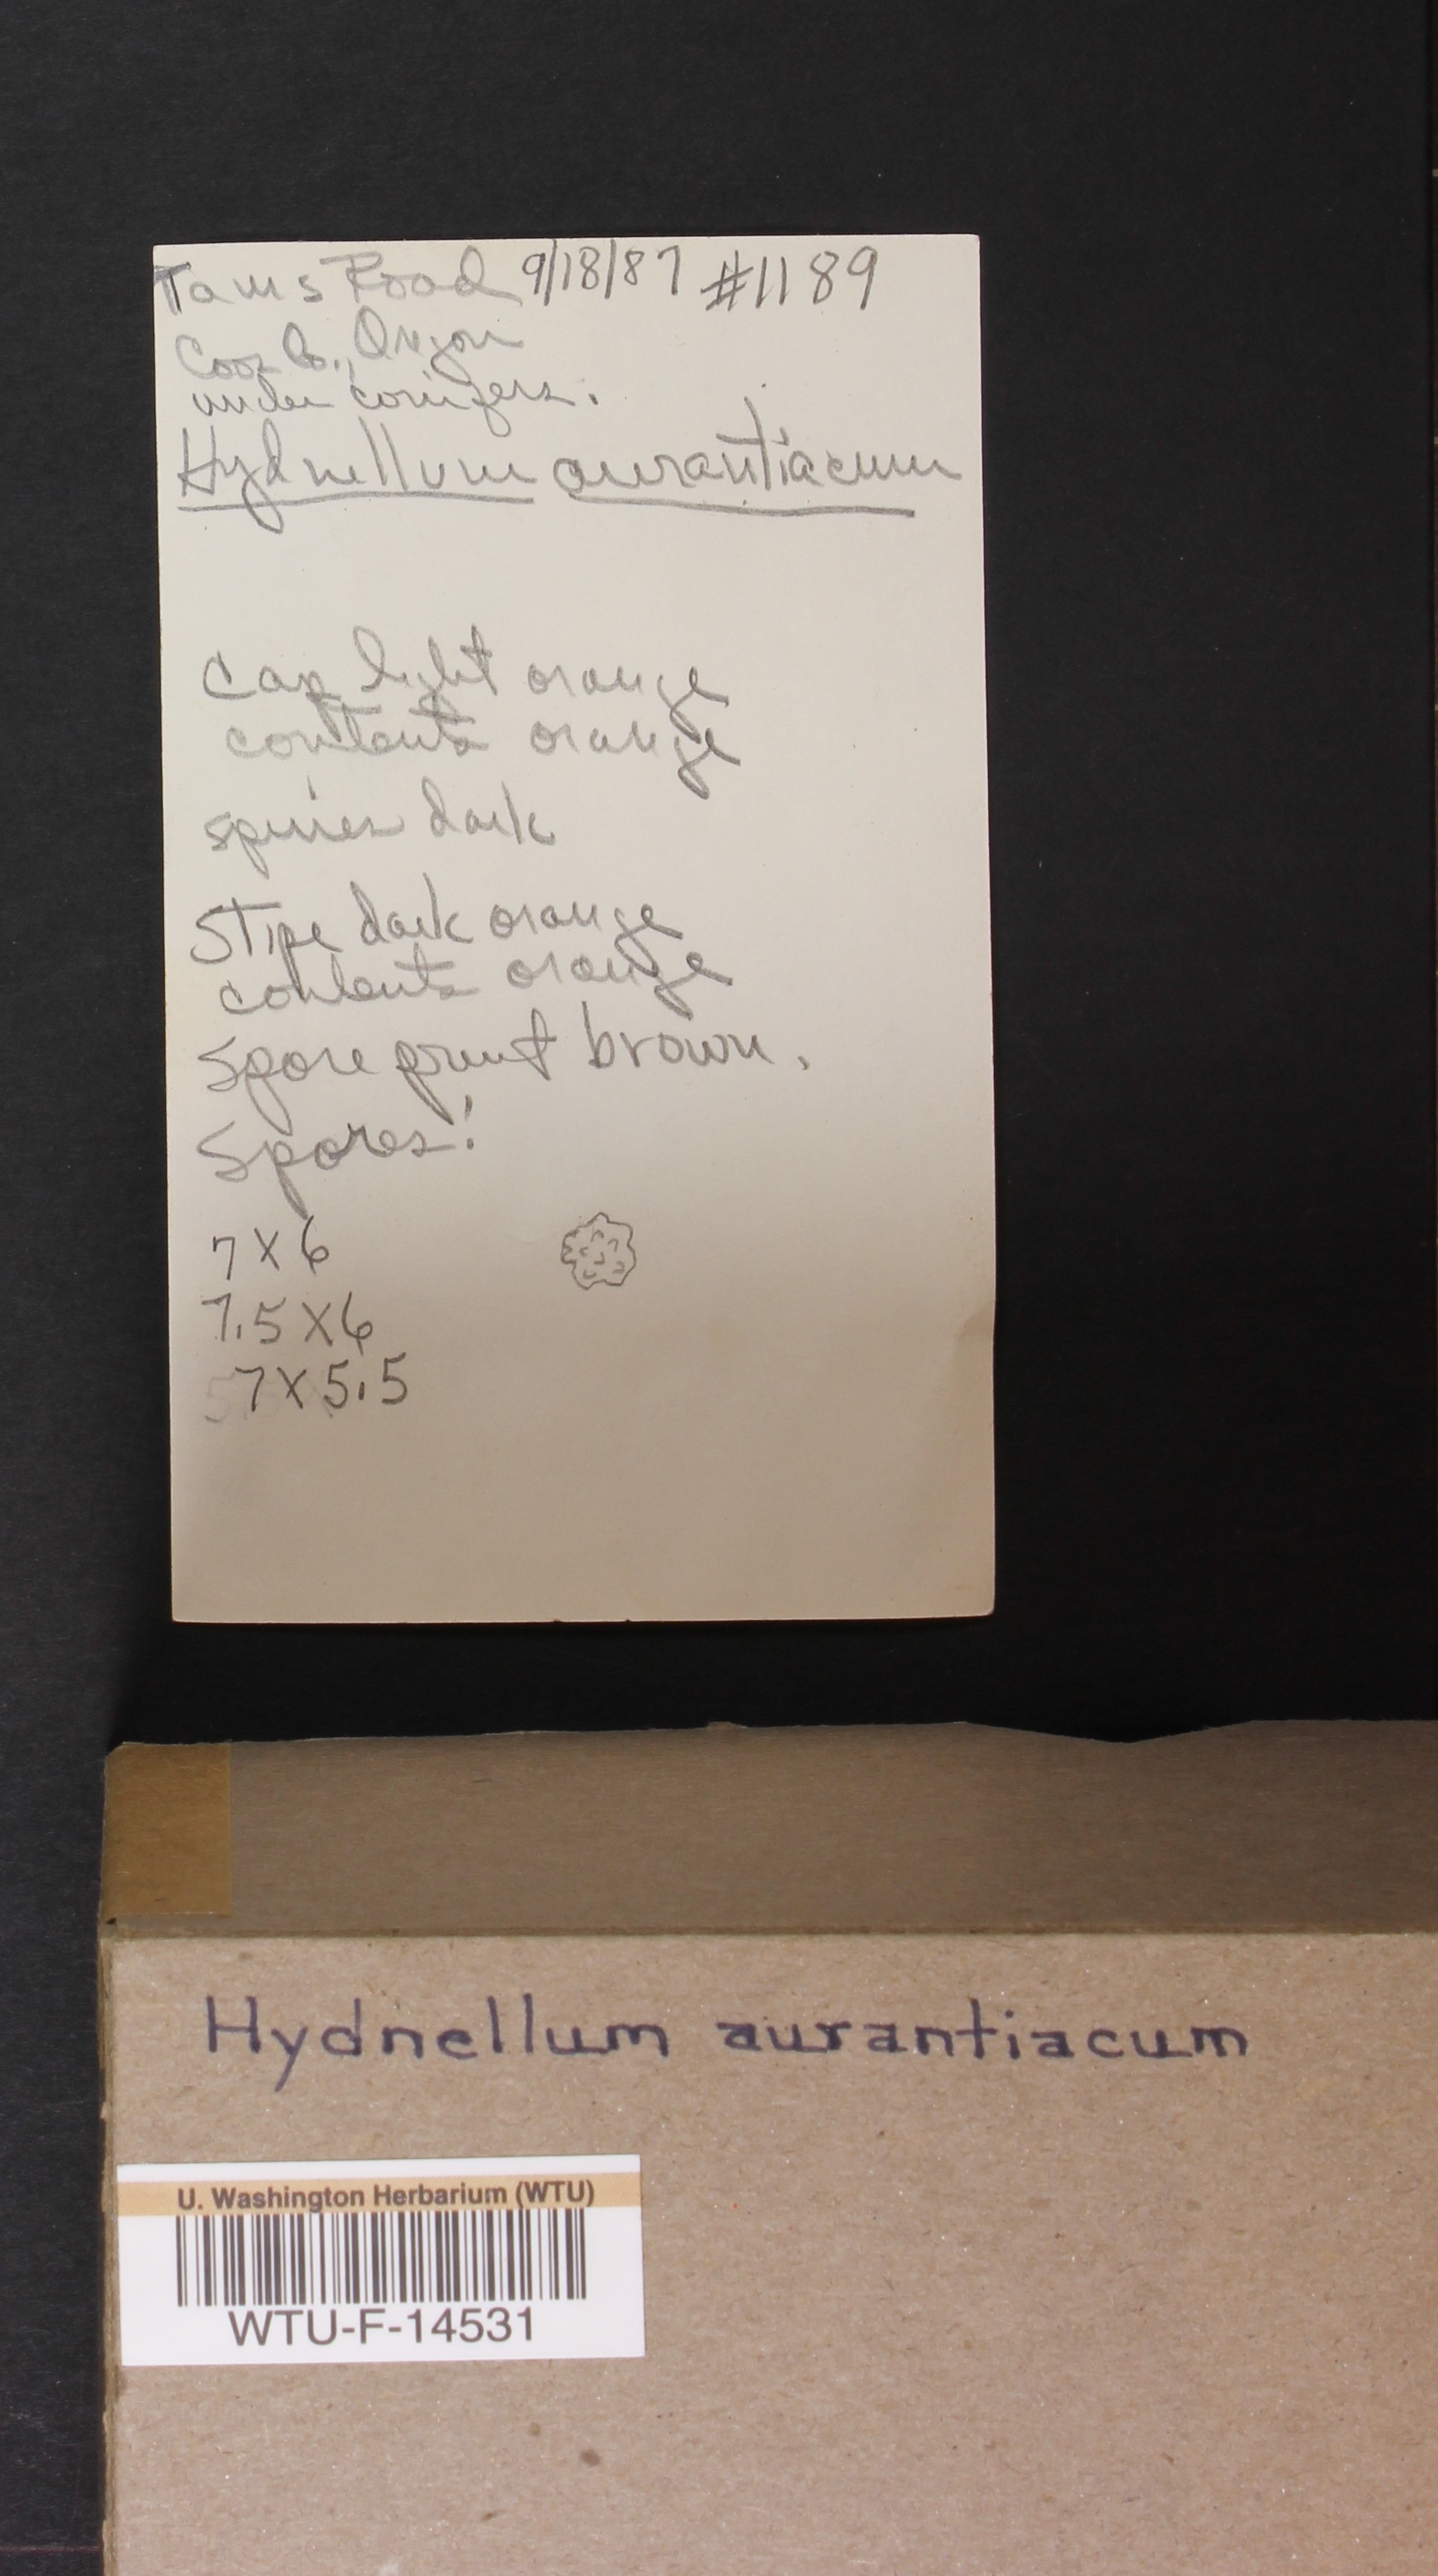 Toms Road 9/18/87 #1189
Coos Co., Oregon
under conifers.
Hydnellum aurantiacum
Cap light orange
contents orange
spines dark
Stipe dark orange
contents orange
Spore print brown.
Spores:
7 X 6
7.5 X 6
7 X 5.5
Hydnellum aurantiacum
U. Washington Herbarium (WTU)
WTU-F-14531